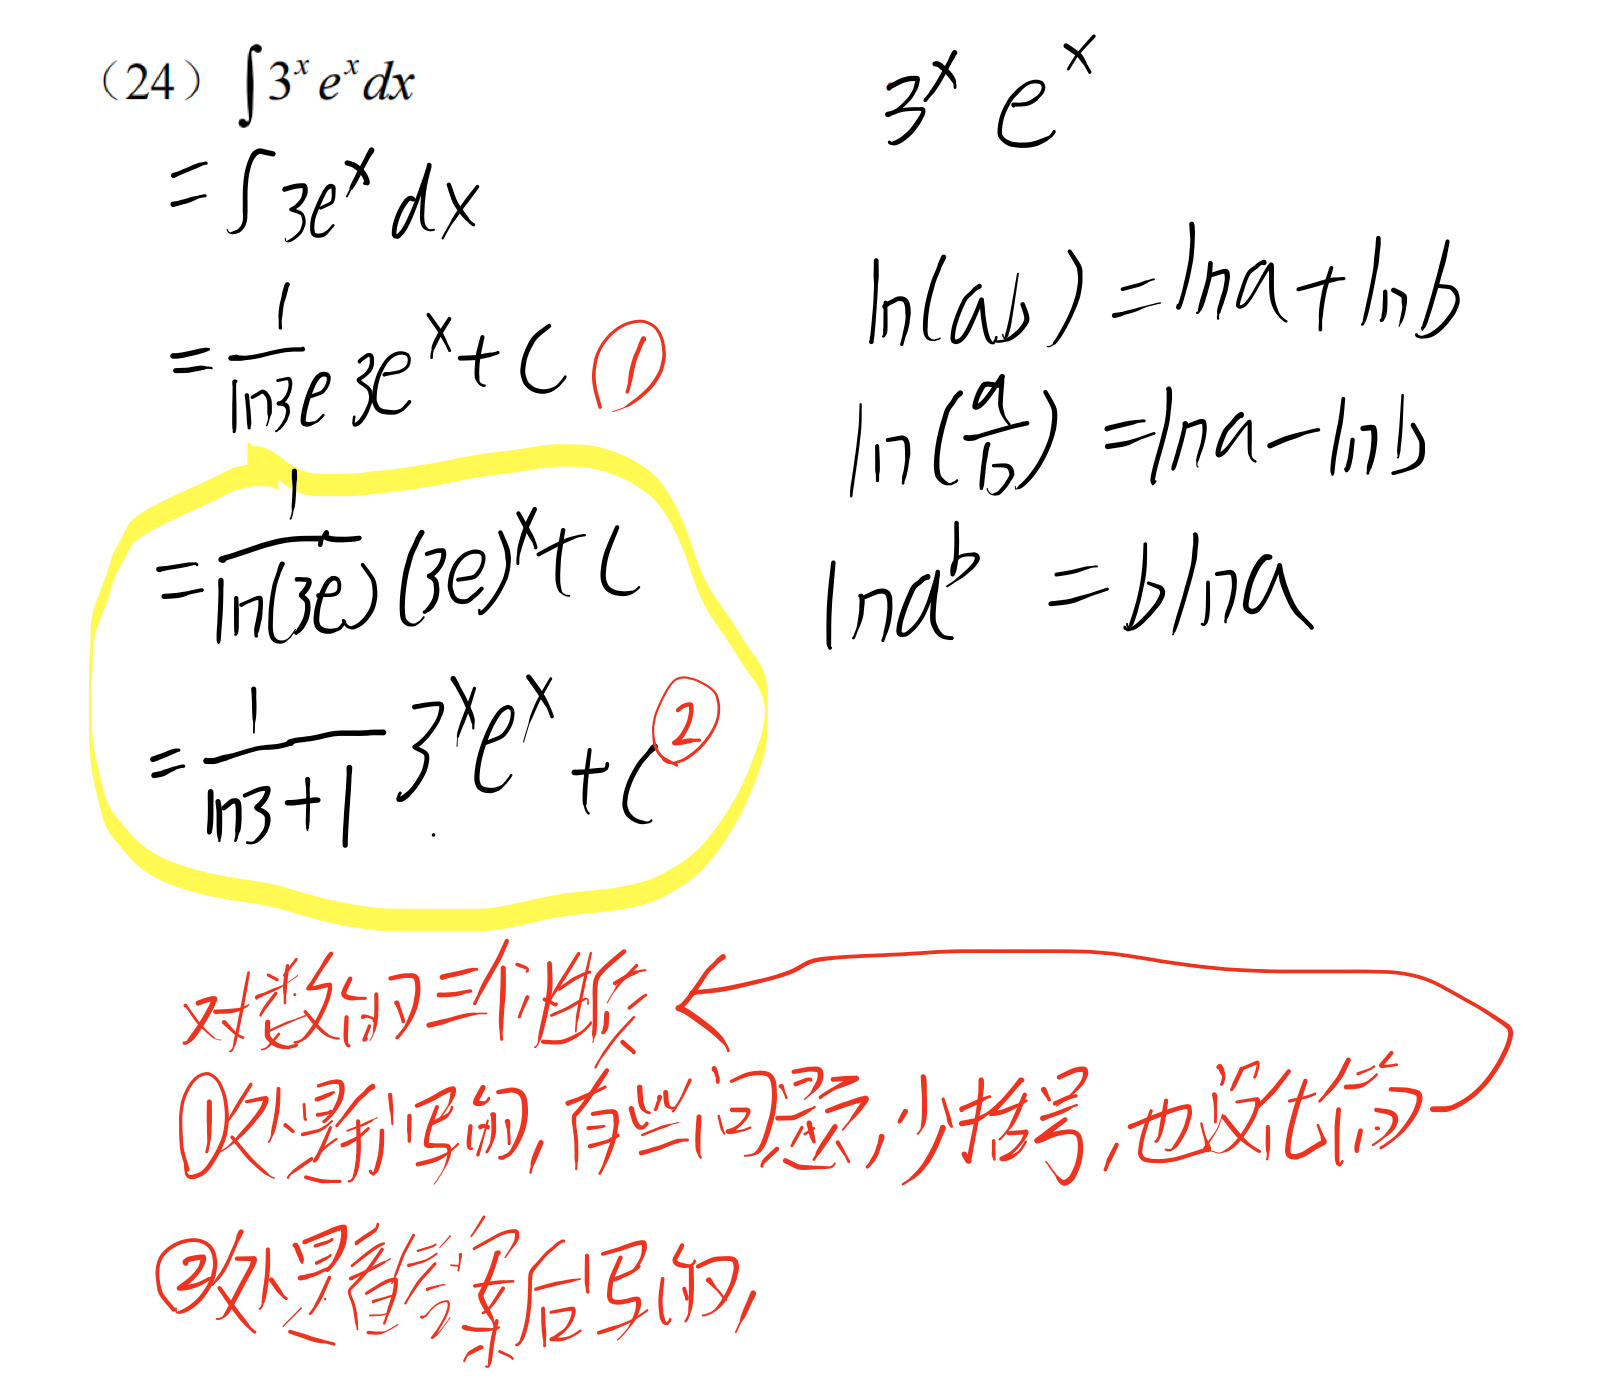 （24）∫3ˣeˣdx
= ∫3eˣdx
= 1/ln3e 3eˣ + C ①
= 1/ln(3e) (3e)ˣ + C
= 1/ln3+1 3ˣeˣ + C ②
3ˣ eˣ
ln(ab) = lna + lnb
ln(a/b) = lna - lnb
lnaᵇ = blna
对数的三个性质
①处是我写的,有些问题,少括号,也没化简
②处是看答案后写的,